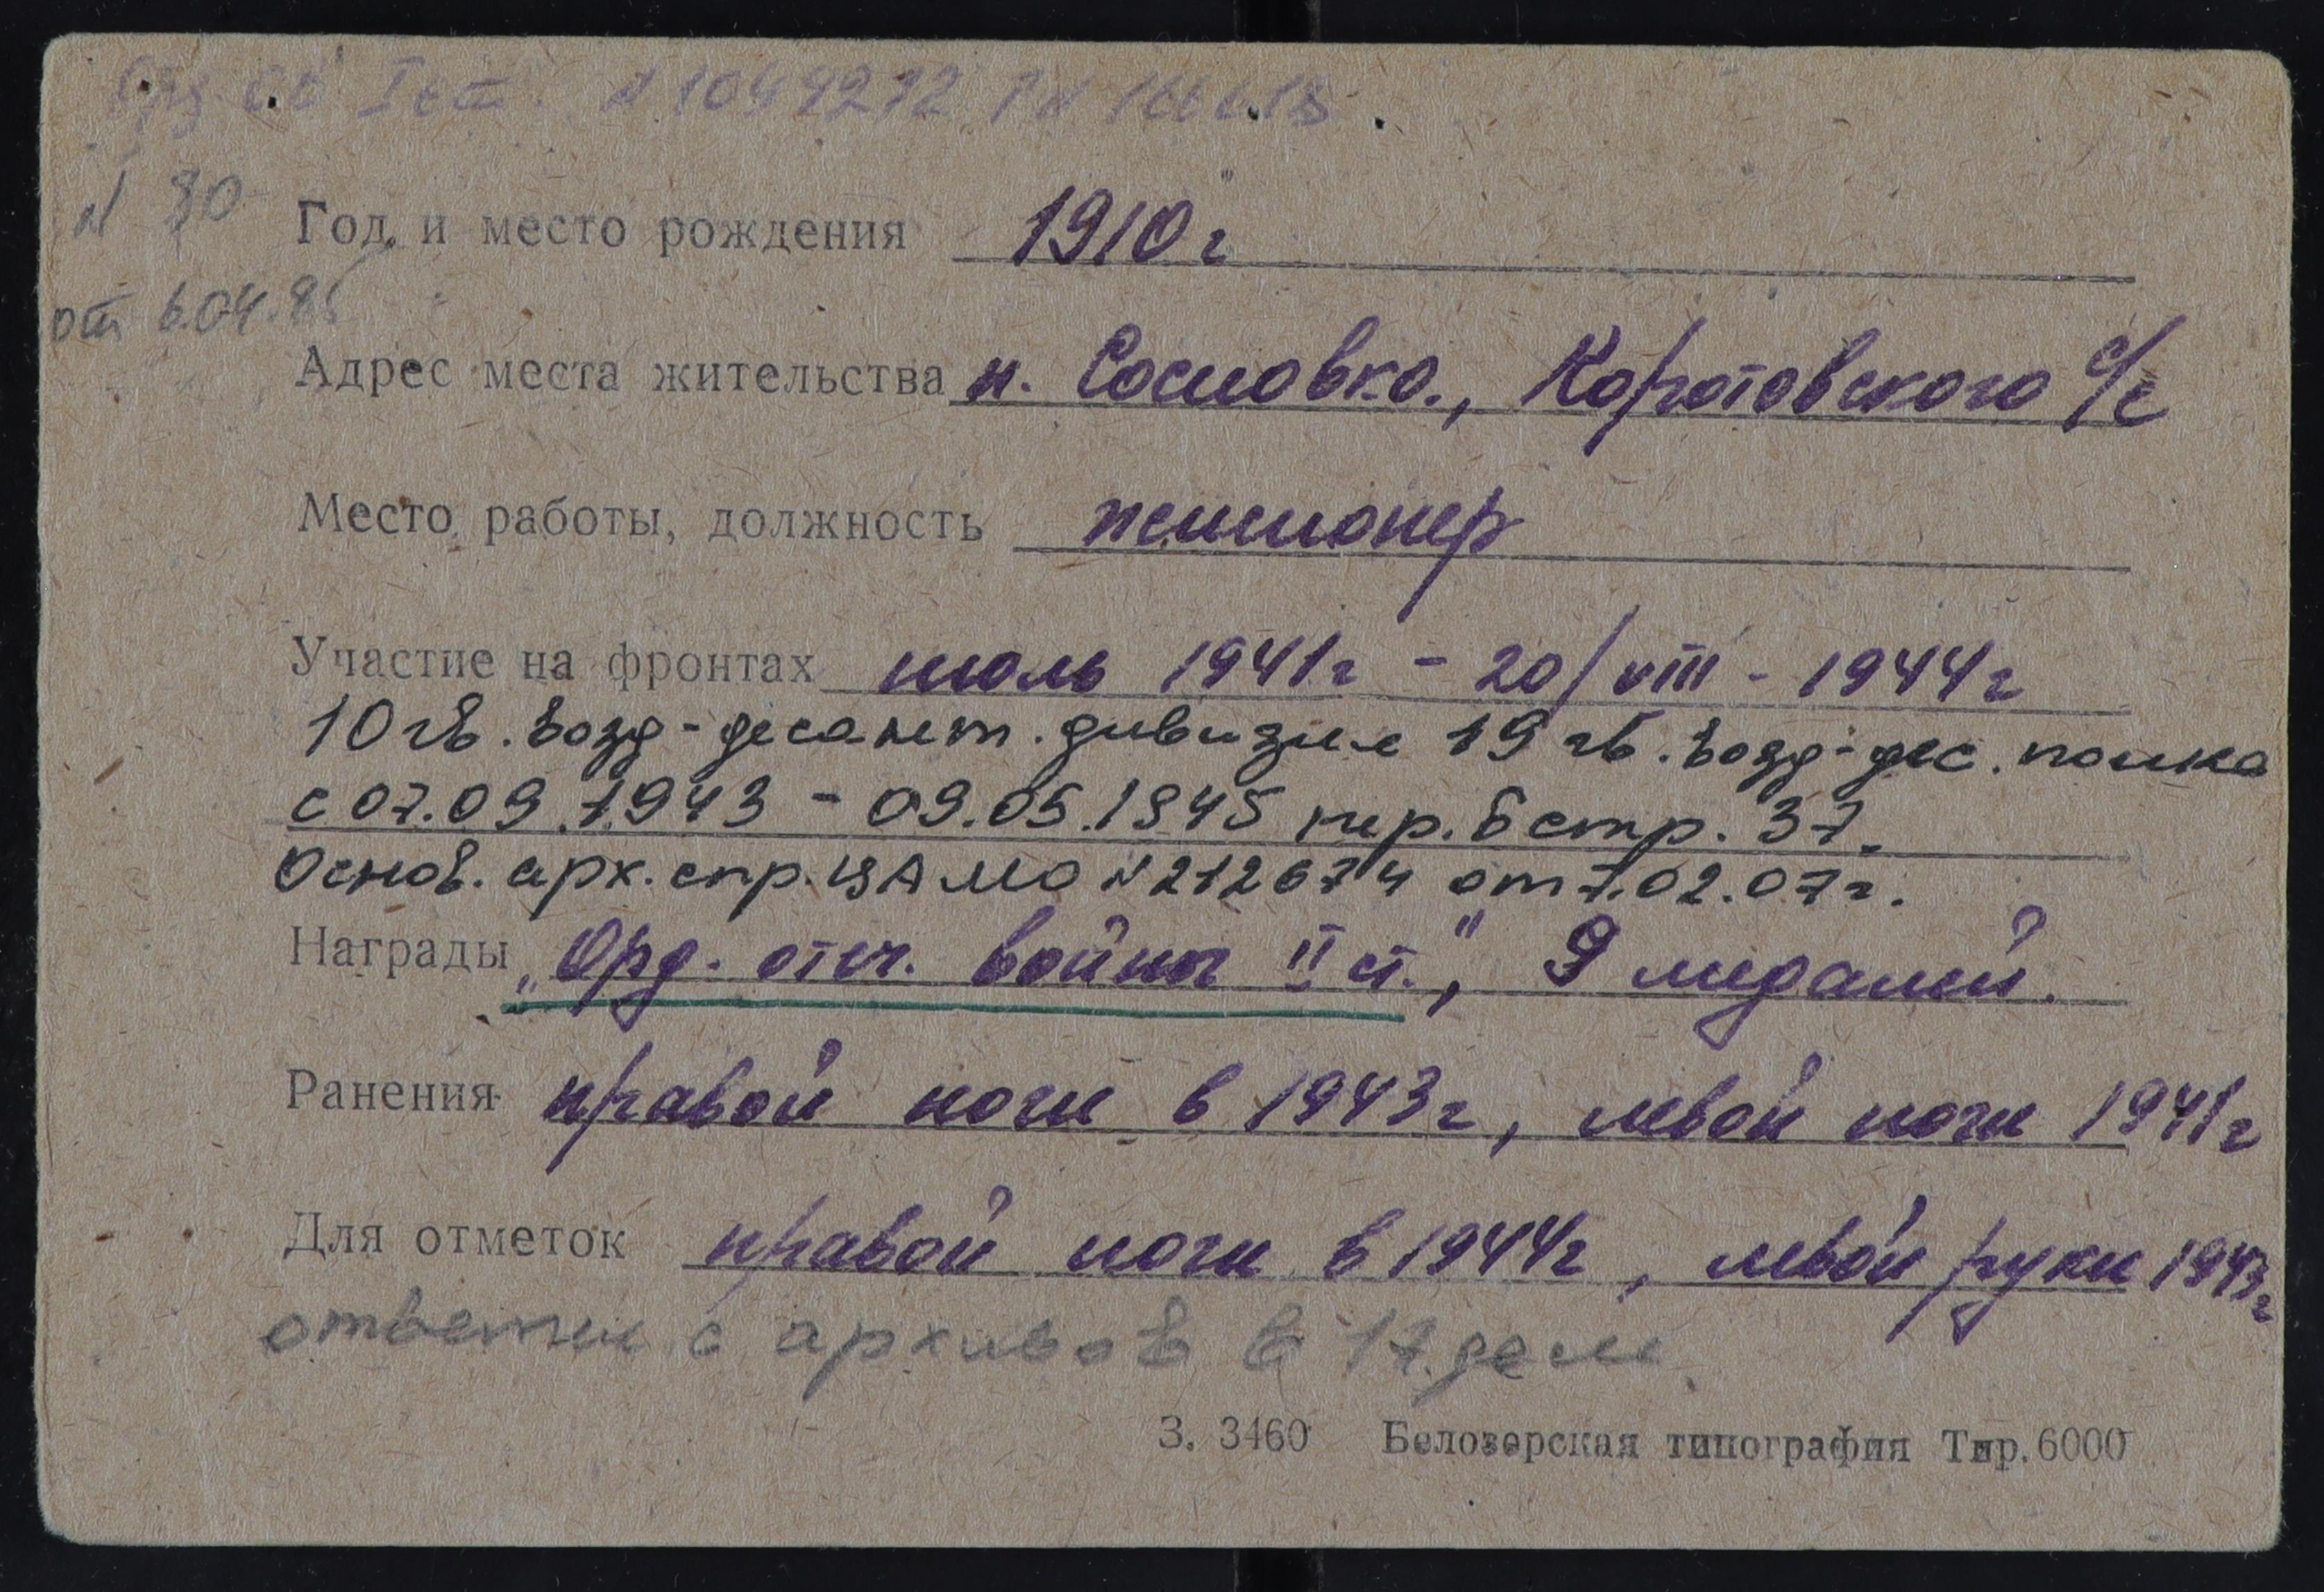 Орд ОВ I ст. N 1044272
N 80
Год и место рождения 1910 г
от 6.04.85
Адрес места жительства п. Сосновка., Коротовского с/с
Место работы, должность пенсионер
Участие на фронтах июль 1941г - 20/VIII - 1944г
10 гв. возд-десантн. дивизия 19 гв. возд-дес. полка
с 07.09.1943 - 09.05.1945 пер. 6 стр. 37
Основ. арх. спр. ЦАМО N 212674 от 7.02.07г.
Награды „Орд. отеч. войны II ст.", 9 медалей.
Ранения правой ноги в 1943г, левой ноги 1941г
Для отметок правой ноги в 1944г, левой руки 1943г
ответы с архивов в 17.деле
З. 3460 Белозерская типография Тир. 6000